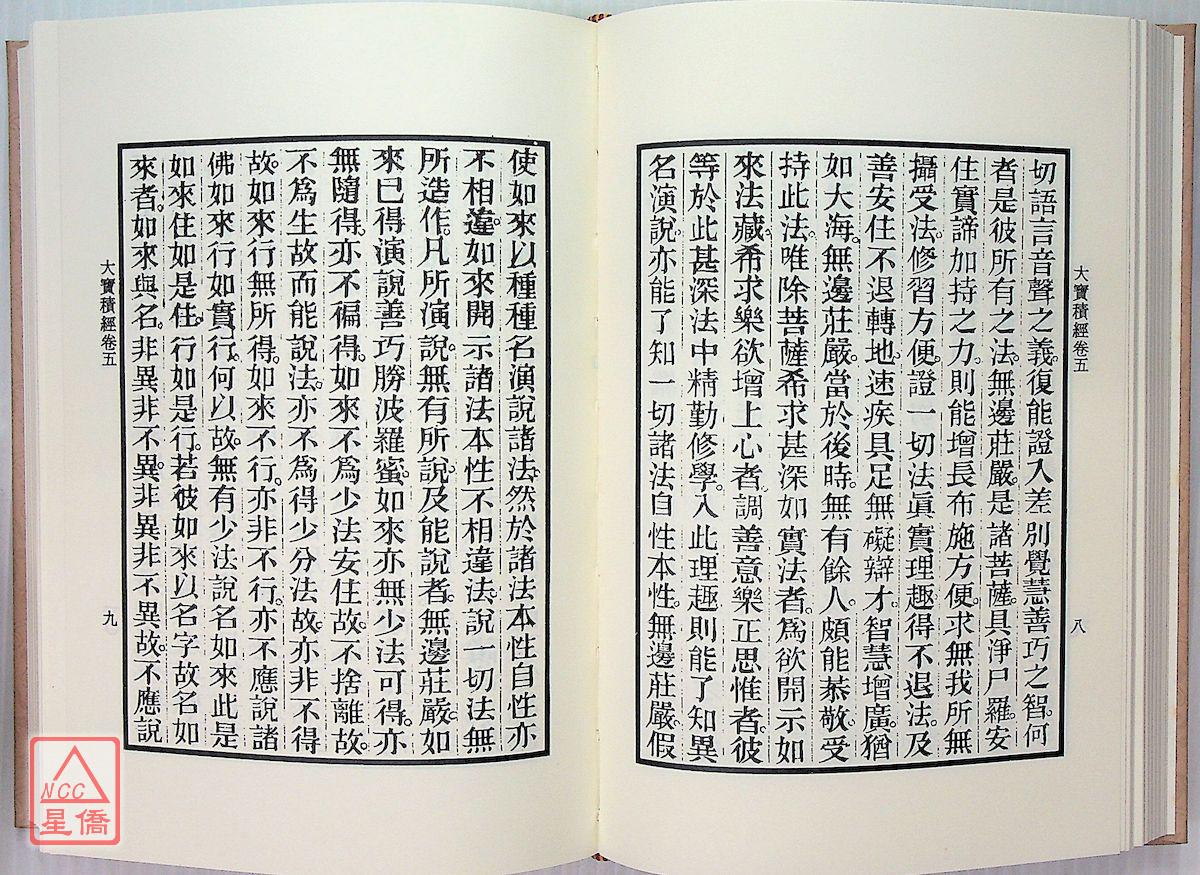 大寶積經卷五
八
切語言音聲之義。復能證入差別覺慧善巧之智。何
者是彼所有之法。無邊莊嚴。是諸菩薩。具淨尸羅。安
住實諦加持之力。則能增長布施方便。求無我所。無
攝受法。修習方便。證一切法眞實理趣。得不退法。及
善安住不退轉地。速疾具足無礙辯才。智慧增廣。猶
如大海。無邊莊嚴。當於後時。無有餘人。頗能恭敬受
持此法。唯除菩薩希求甚深如實法者。爲欲開示如
來法藏。希求樂欲增上心者。調善意樂正思惟者。彼
等於此甚深法中精勤修學。入此理趣。則能了知異
名演說。亦能了知一切諸法自性本性。無邊莊嚴。假
使如來以種種名演說諸法。然於諸法本性自性亦
不相違。如來開示諸法本性不相違法。說一切法無
所造作。凡所演說。無有所說及能說者。無邊莊嚴。如
來已得演說善巧勝波羅蜜。如來亦無少法可得。亦
無隨得。亦不徧得。如來不爲少法安住故。不捨離故。
不爲生故而能說法。亦不爲得少分法故。亦非不得
故。如來行無所得。如來不行。亦非不行。亦不應說諸
佛如來行如實行。何以故。無有少法說名如來此是
如來住如是住。行如是行。若彼如來以名字故名如
來者。如來與名。非異非不異。非異非不異故。不應說
大寶積經卷五
九
NCC
星僑